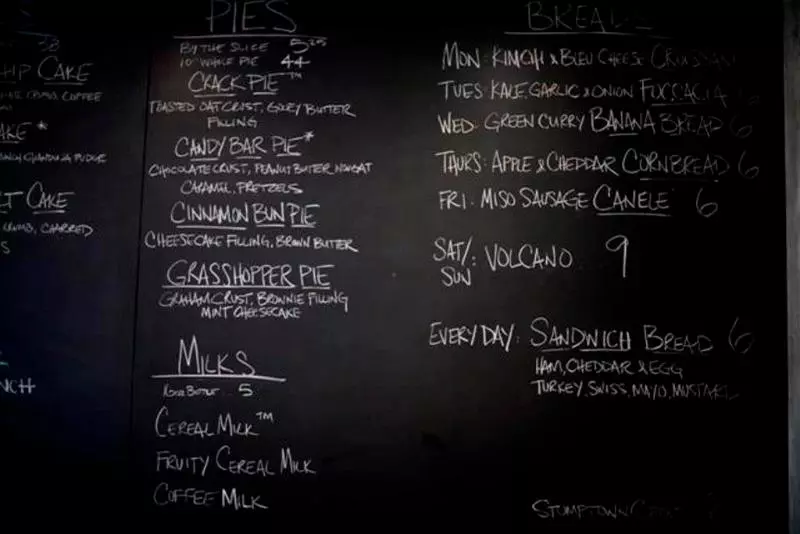 CAKE
COFFEE
CAKE
CHARRED
PIES
BY THE SLICE 5.25
10" WHOLE PIE 44
CRACK PIE™
TOASTED OAT CRUST, GOOEY BUTTER
FILLING
CANDY BAR PIE*
CHOCOLATE CRUST, PEANUT BUTTER NOUGAT
CARAMEL, PRETZELS
CINNAMON BUN PIE
CHEESECAKE FILLING, BROWN BUTTER
GRASSHOPPER PIE
GRAHAM CRUST, BROWNIE FILLING
MINT CHEESECAKE
MILKS
5
CEREAL MILK™
FRUITY CEREAL MILK
COFFEE MILK
MON: KIMCHI & BLEU CHEESE
TUES: KALE, GARLIC & ONION FOCCACIA
WED: GREEN CURRY BANANA BREAD 6
THURS: APPLE & CHEDDAR CORNBREAD 6
FRI: MISO SAUSAGE CANELE 6
SAT/SUN: VOLCANO 9
EVERYDAY: SANDWICH BREAD 6
HAM, CHEDDAR & EGG
TURKEY, SWISS, MAYO, MUSTARD
STUMPTOWN